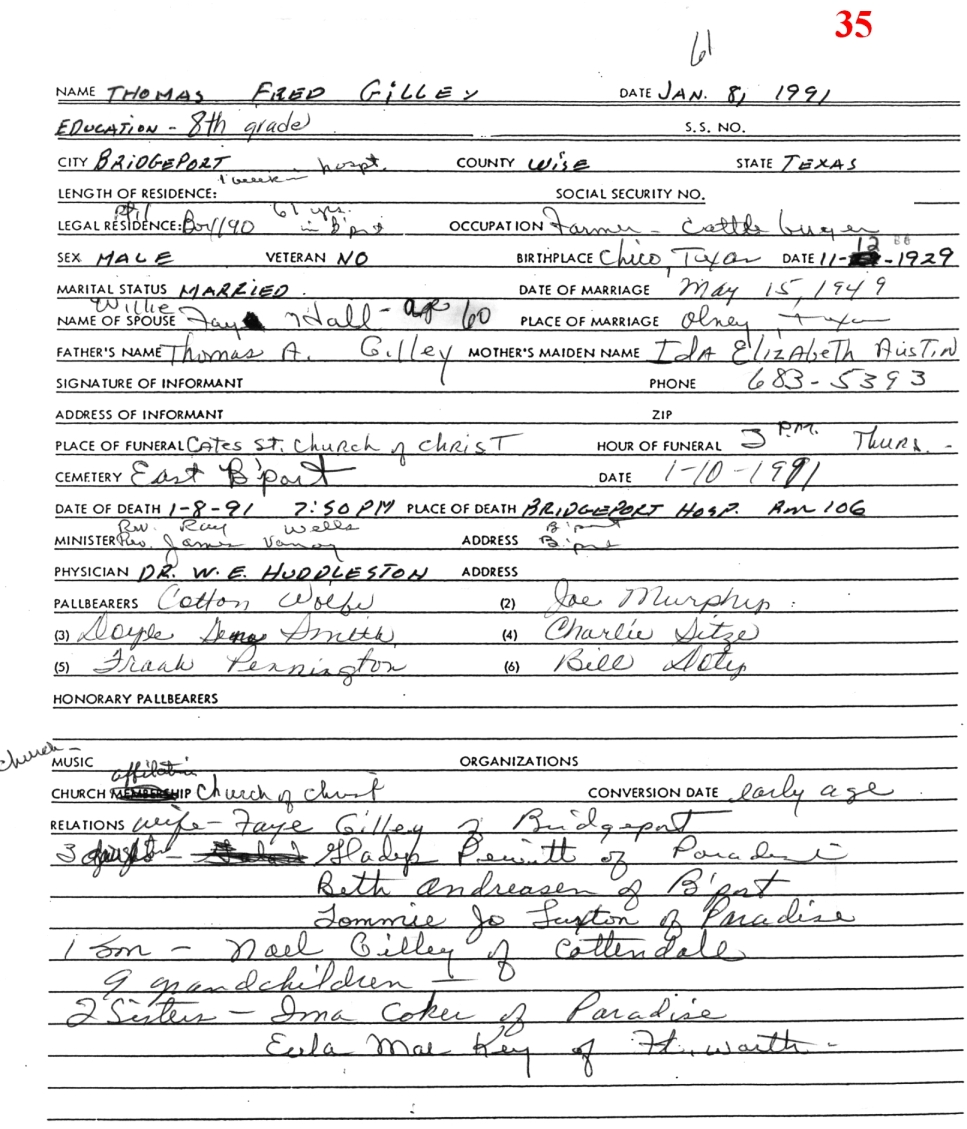 35
61
NAME THOMAS FRED GILLEY DATE JAN. 8, 1991
EDUCATION - 8th grade S.S. NO.
CITY BRIDGEPORT COUNTY WISE STATE TEXAS
1 week - hospt.
LENGTH OF RESIDENCE: SOCIAL SECURITY NO.
61 yrs. in B'port
LEGAL RESIDENCE: Box 190 OCCUPATION Farmer - Cattle buyer
SEX MALE VETERAN NO BIRTHPLACE Chico, Texas DATE 11-12-1929
MARITAL STATUS MARRIED. DATE OF MARRIAGE May 15, 1949
Willie
NAME OF SPOUSE Faye Hall - age 60 PLACE OF MARRIAGE Olney, Texas
FATHER'S NAME Thomas A. Gilley MOTHER'S MAIDEN NAME IdA ElizAbeth AusTin
SIGNATURE OF INFORMANT PHONE 683-5393
ADDRESS OF INFORMANT ZIP
PLACE OF FUNERAL Cates St. Church of Christ HOUR OF FUNERAL 3 P.M. Thurs. -
CEMETERY East B'port DATE 1-10-1991
DATE OF DEATH 1-8-91 7:50 PM PLACE OF DEATH BRIDGEPORT HOSP. Rm 106
Bro. Ray Wells B'port
MINISTER Rev. James Vanoy ADDRESS B'port
PHYSICIAN DR. W. E. HUDDLESTON ADDRESS
PALLBEARERS Cotton Wolfe (2) Joe Murphy
(3) Doyle Smith (4) Charlie Sitze
(5) Frank Pennington (6) Bill Doty
HONORARY PALLBEARERS
Church -
MUSIC ORGANIZATIONS
CHURCH MEMBERSHIP Church of Christ CONVERSION DATE early age
RELATIONS wife - Faye Gilley of Bridgeport
3 Gladys Pewitt of Paradise
Beth Andreasen of B'port
Tommie Jo Luxton of Paradise
1 son - Noel Gilley of Cottendale
9 grandchildren -
2 Sisters - Ima Coker of Paradise
Eula Mae Key of Ft. Worth -